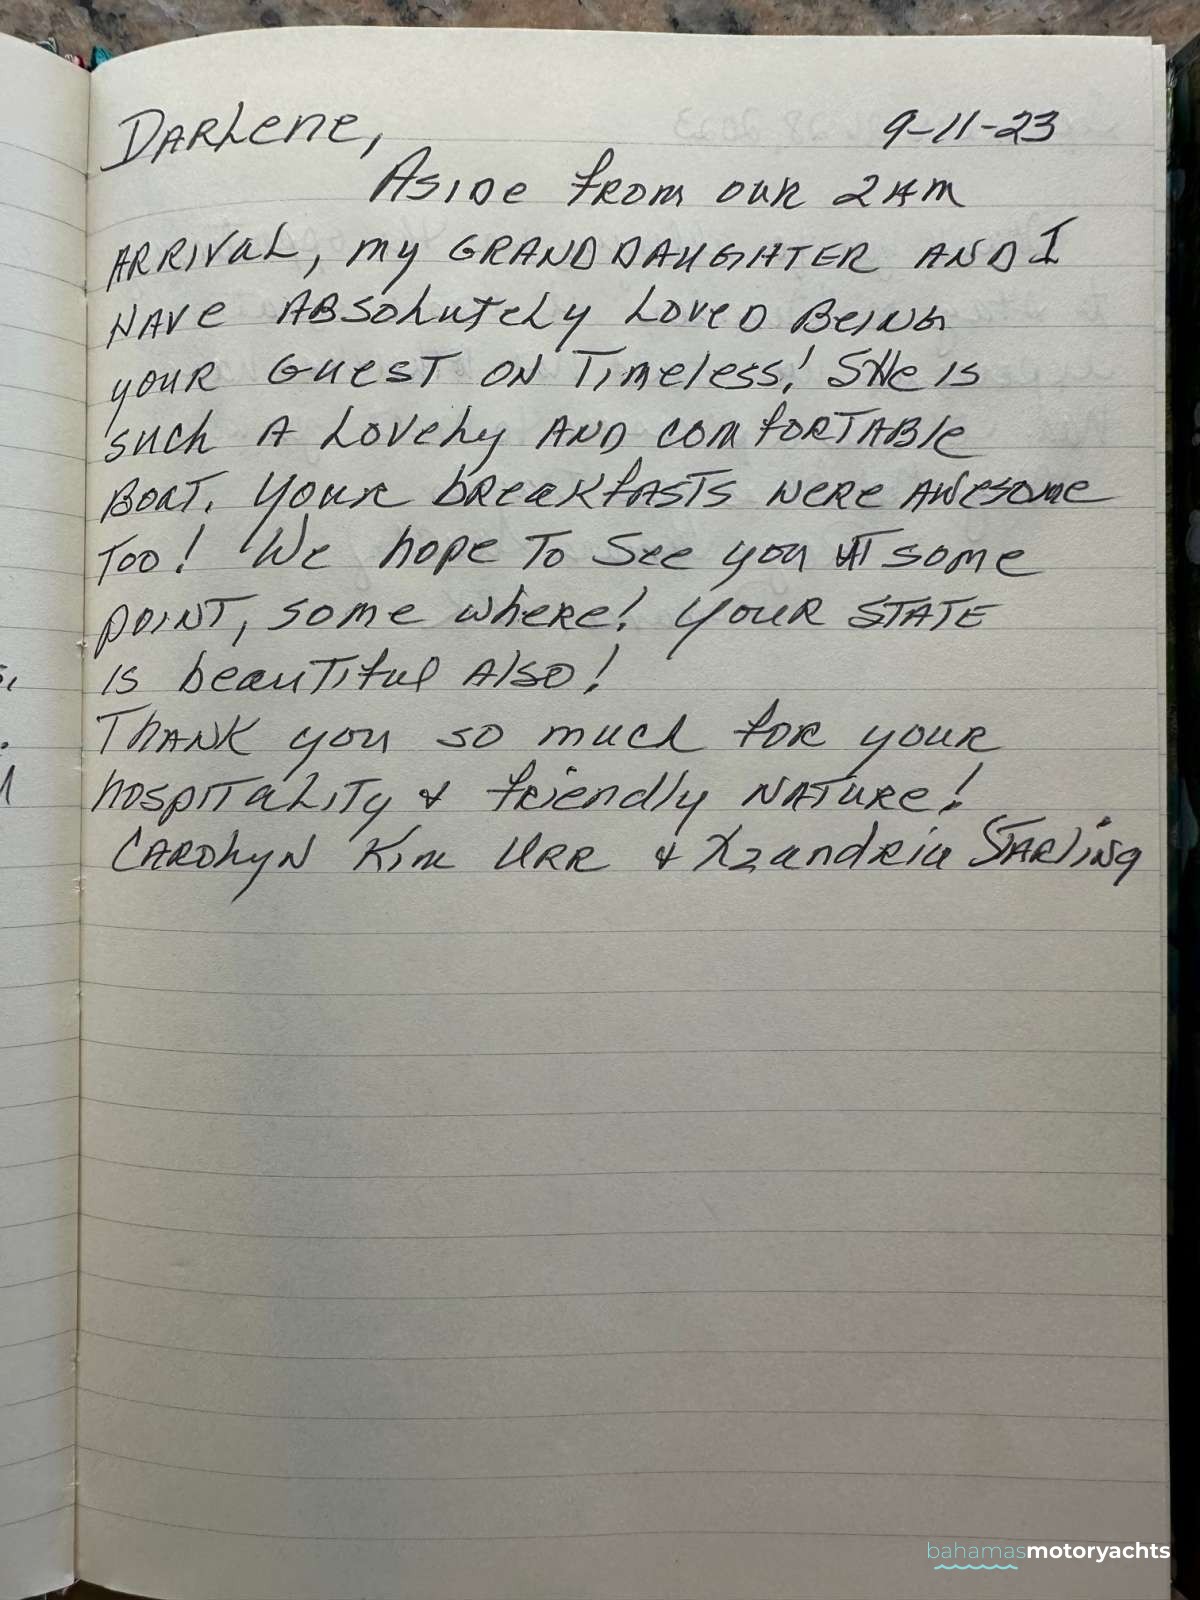 Darlene, 9-11-23
Aside from our 2am
arrival, my granddaughter and I
have absolutely loved being
your guest on Timeless! She is
such a lovely and comfortable
boat. Your breakfasts were awesome
too! We hope to see you at some
point, some where! Your state
is beautiful also!
Thank you so much for your
hospitality & friendly nature!
Carolyn Kim Urr & Xzandria Starling
bahamasmotoryachts